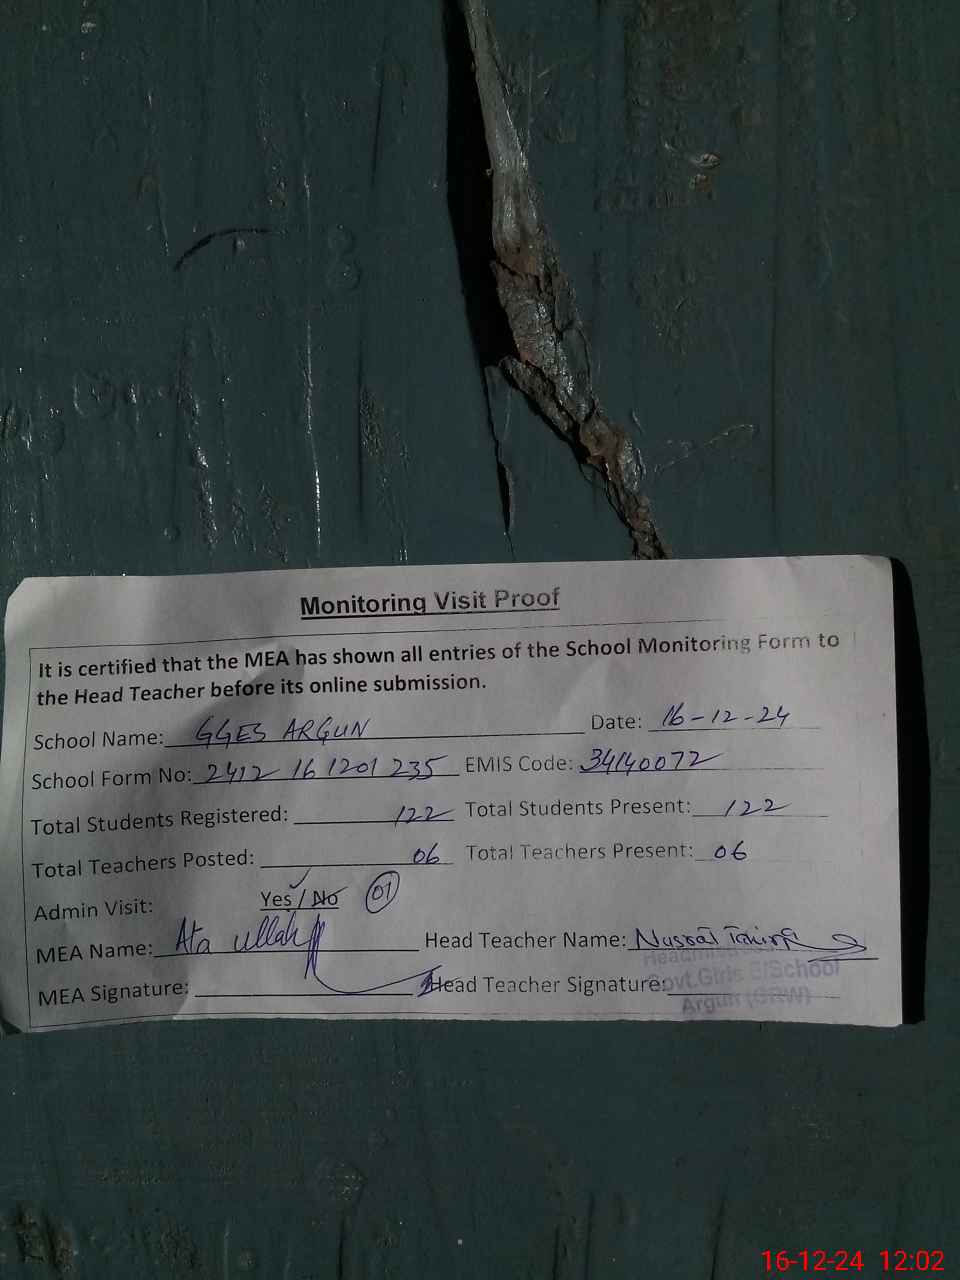 Monitoring Visit Proof
It is certified that the MEA has shown all entries of the School Monitoring Form to
the Head Teacher before its online submission.
School Name: GGES ARGUN Date: 16-12-24
School Form No: 2412 16 1201 235 EMIS Code: 34140072
Total Students Registered: 122 Total Students Present: 122
Total Teachers Posted: 06 Total Teachers Present: 06
Admin Visit: Yes / No 01
MEA Name: Ata ullah Head Teacher Name: Nusrat
MEA Signature: Head Teacher Signature:
Govt.Girls E/School
Argun (GRW)
16-12-24 12:02